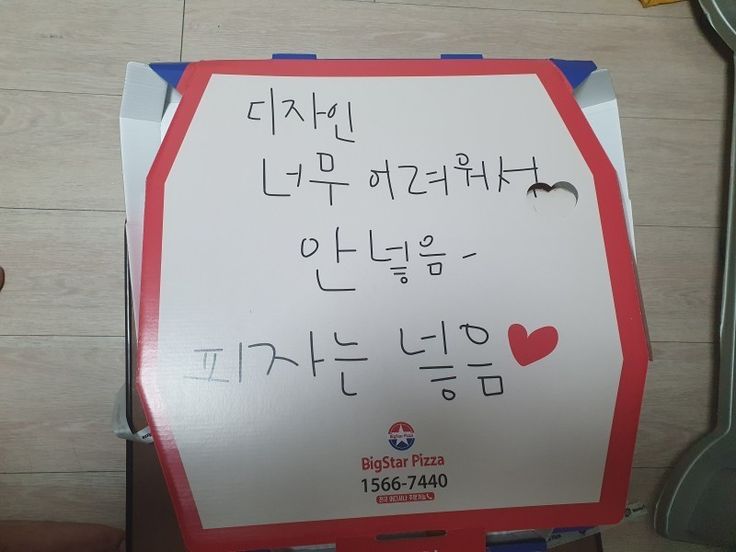 디자인
너무 어려워서
안 넣음-
피자는 넣음
BigStar Pizza
BigStar Pizza
1566-7440
전국 어디서나 주문가능